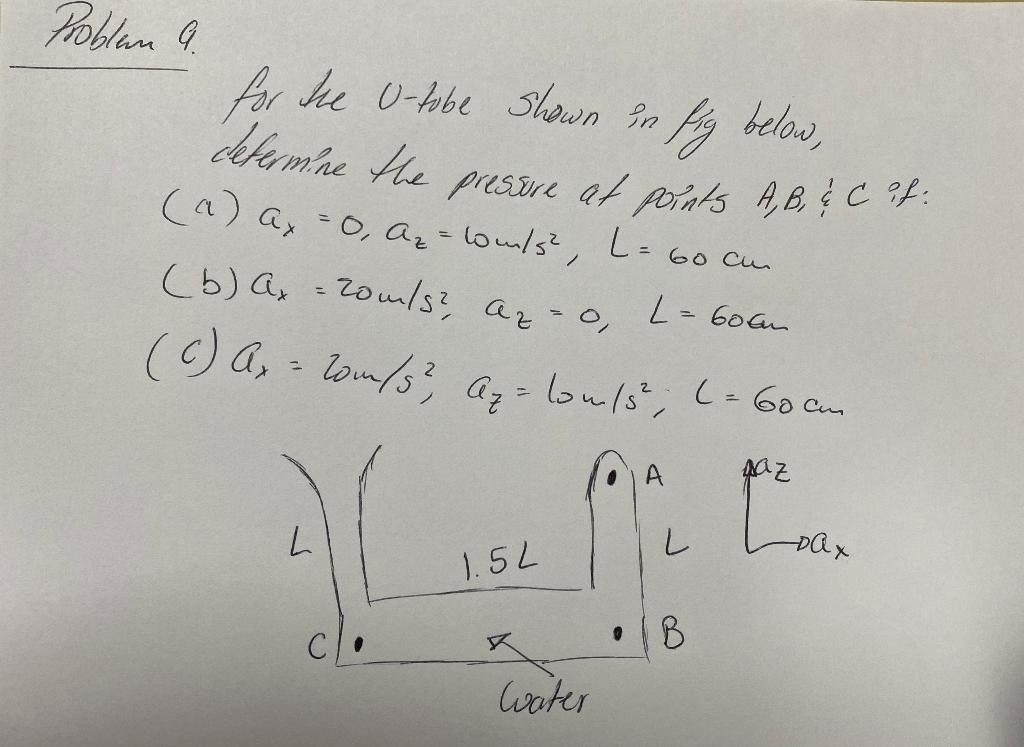 Problem 9.
for the U-tobe shown in fig below,
determine the pressure at points A, B, & C if:
(a) ax = 0, az = 10m/s², L = 60 cm
(b) ax = 20m/s², az = 0, L = 60cm
(c) ax = 20m/s², az = 10m/s², L = 60 cm
A
az
L
1.5L
L
ax
C
B
water